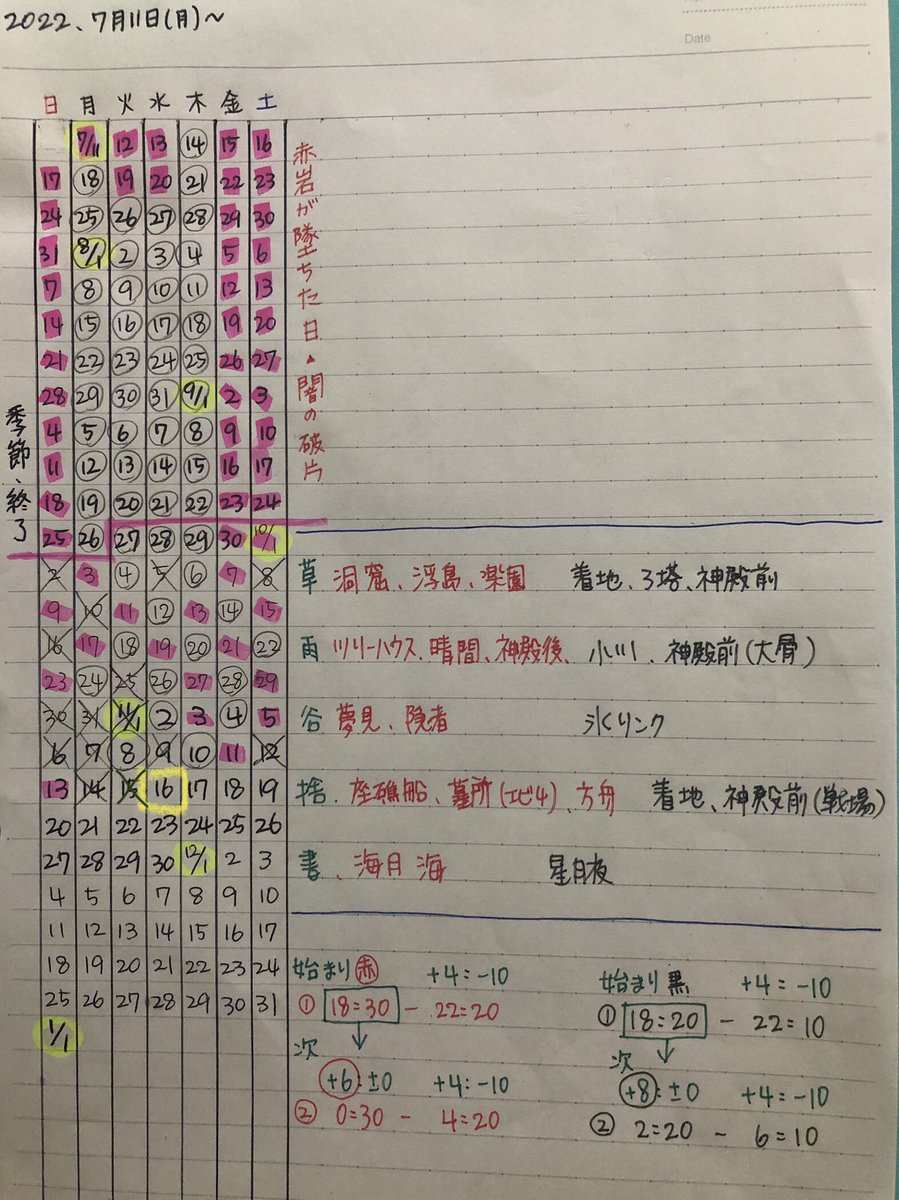 2022、7月11日(月)～
Date
日 月 火 水 木 金 土
7/11 12 13 14 15 16
17 18 19 20 21 22 23
24 25 26 27 28 29 30
31 8/1 2 3 4 5 6
7 8 9 10 11 12 13
14 15 16 17 18 19 20
21 22 23 24 25 26 27
28 29 30 31 9/1 2 3
4 5 6 7 8 9 10
11 12 13 14 15 16 17
18 19 20 21 22 23 24
25 26 27 28 29 30 10/1
2 3 4 5 6 7 8
9 10 11 12 13 14 15
16 17 18 19 20 21 22
23 24 25 26 27 28 29
30 31 11/1 2 3 4 5
6 7 8 9 10 11 12
13 14 15 16 17 18 19
20 21 22 23 24 25 26
27 28 29 30 12/1 2 3
4 5 6 7 8 9 10
11 12 13 14 15 16 17
18 19 20 21 22 23 24
25 26 27 28 29 30 31
1/1
季節、終了
赤岩が墜ちた日▲闇の破片
草 洞窟、浮島、楽園 着地、3塔、神殿前
雨 ツリーハウス、晴間、神殿後、小川、神殿前(大骨)
谷 夢見、隠者 氷リンク
捨、座礁船、墓所(エビ4)、方舟 着地、神殿前(戦場)
書、海月海 星月夜
始まり赤 +4:-10
① 18:30 - 22:20
次
+6:±0 +4:-10
② 0:30 - 4:20
始まり黒 +4:-10
① 18:20 - 22:10
次
+8:±0 +4:-10
② 2:20 - 6:10